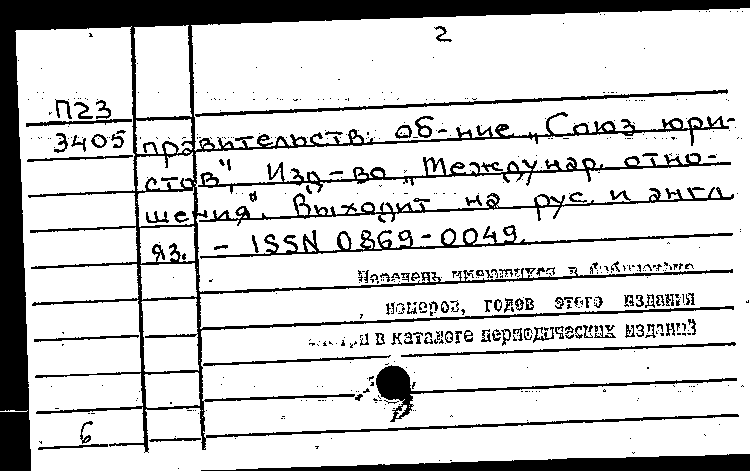 2
П23
3405 правительств. об-ние „Союз юри-
стов", Изд-во „Междунар. отно-
шения". Выходит на рус. и англ
яз. – ISSN 0869-0049.
Перечень имеющихся в библиотеке
номеров, годов этого издания
смотри в каталоге периодических изданий
6